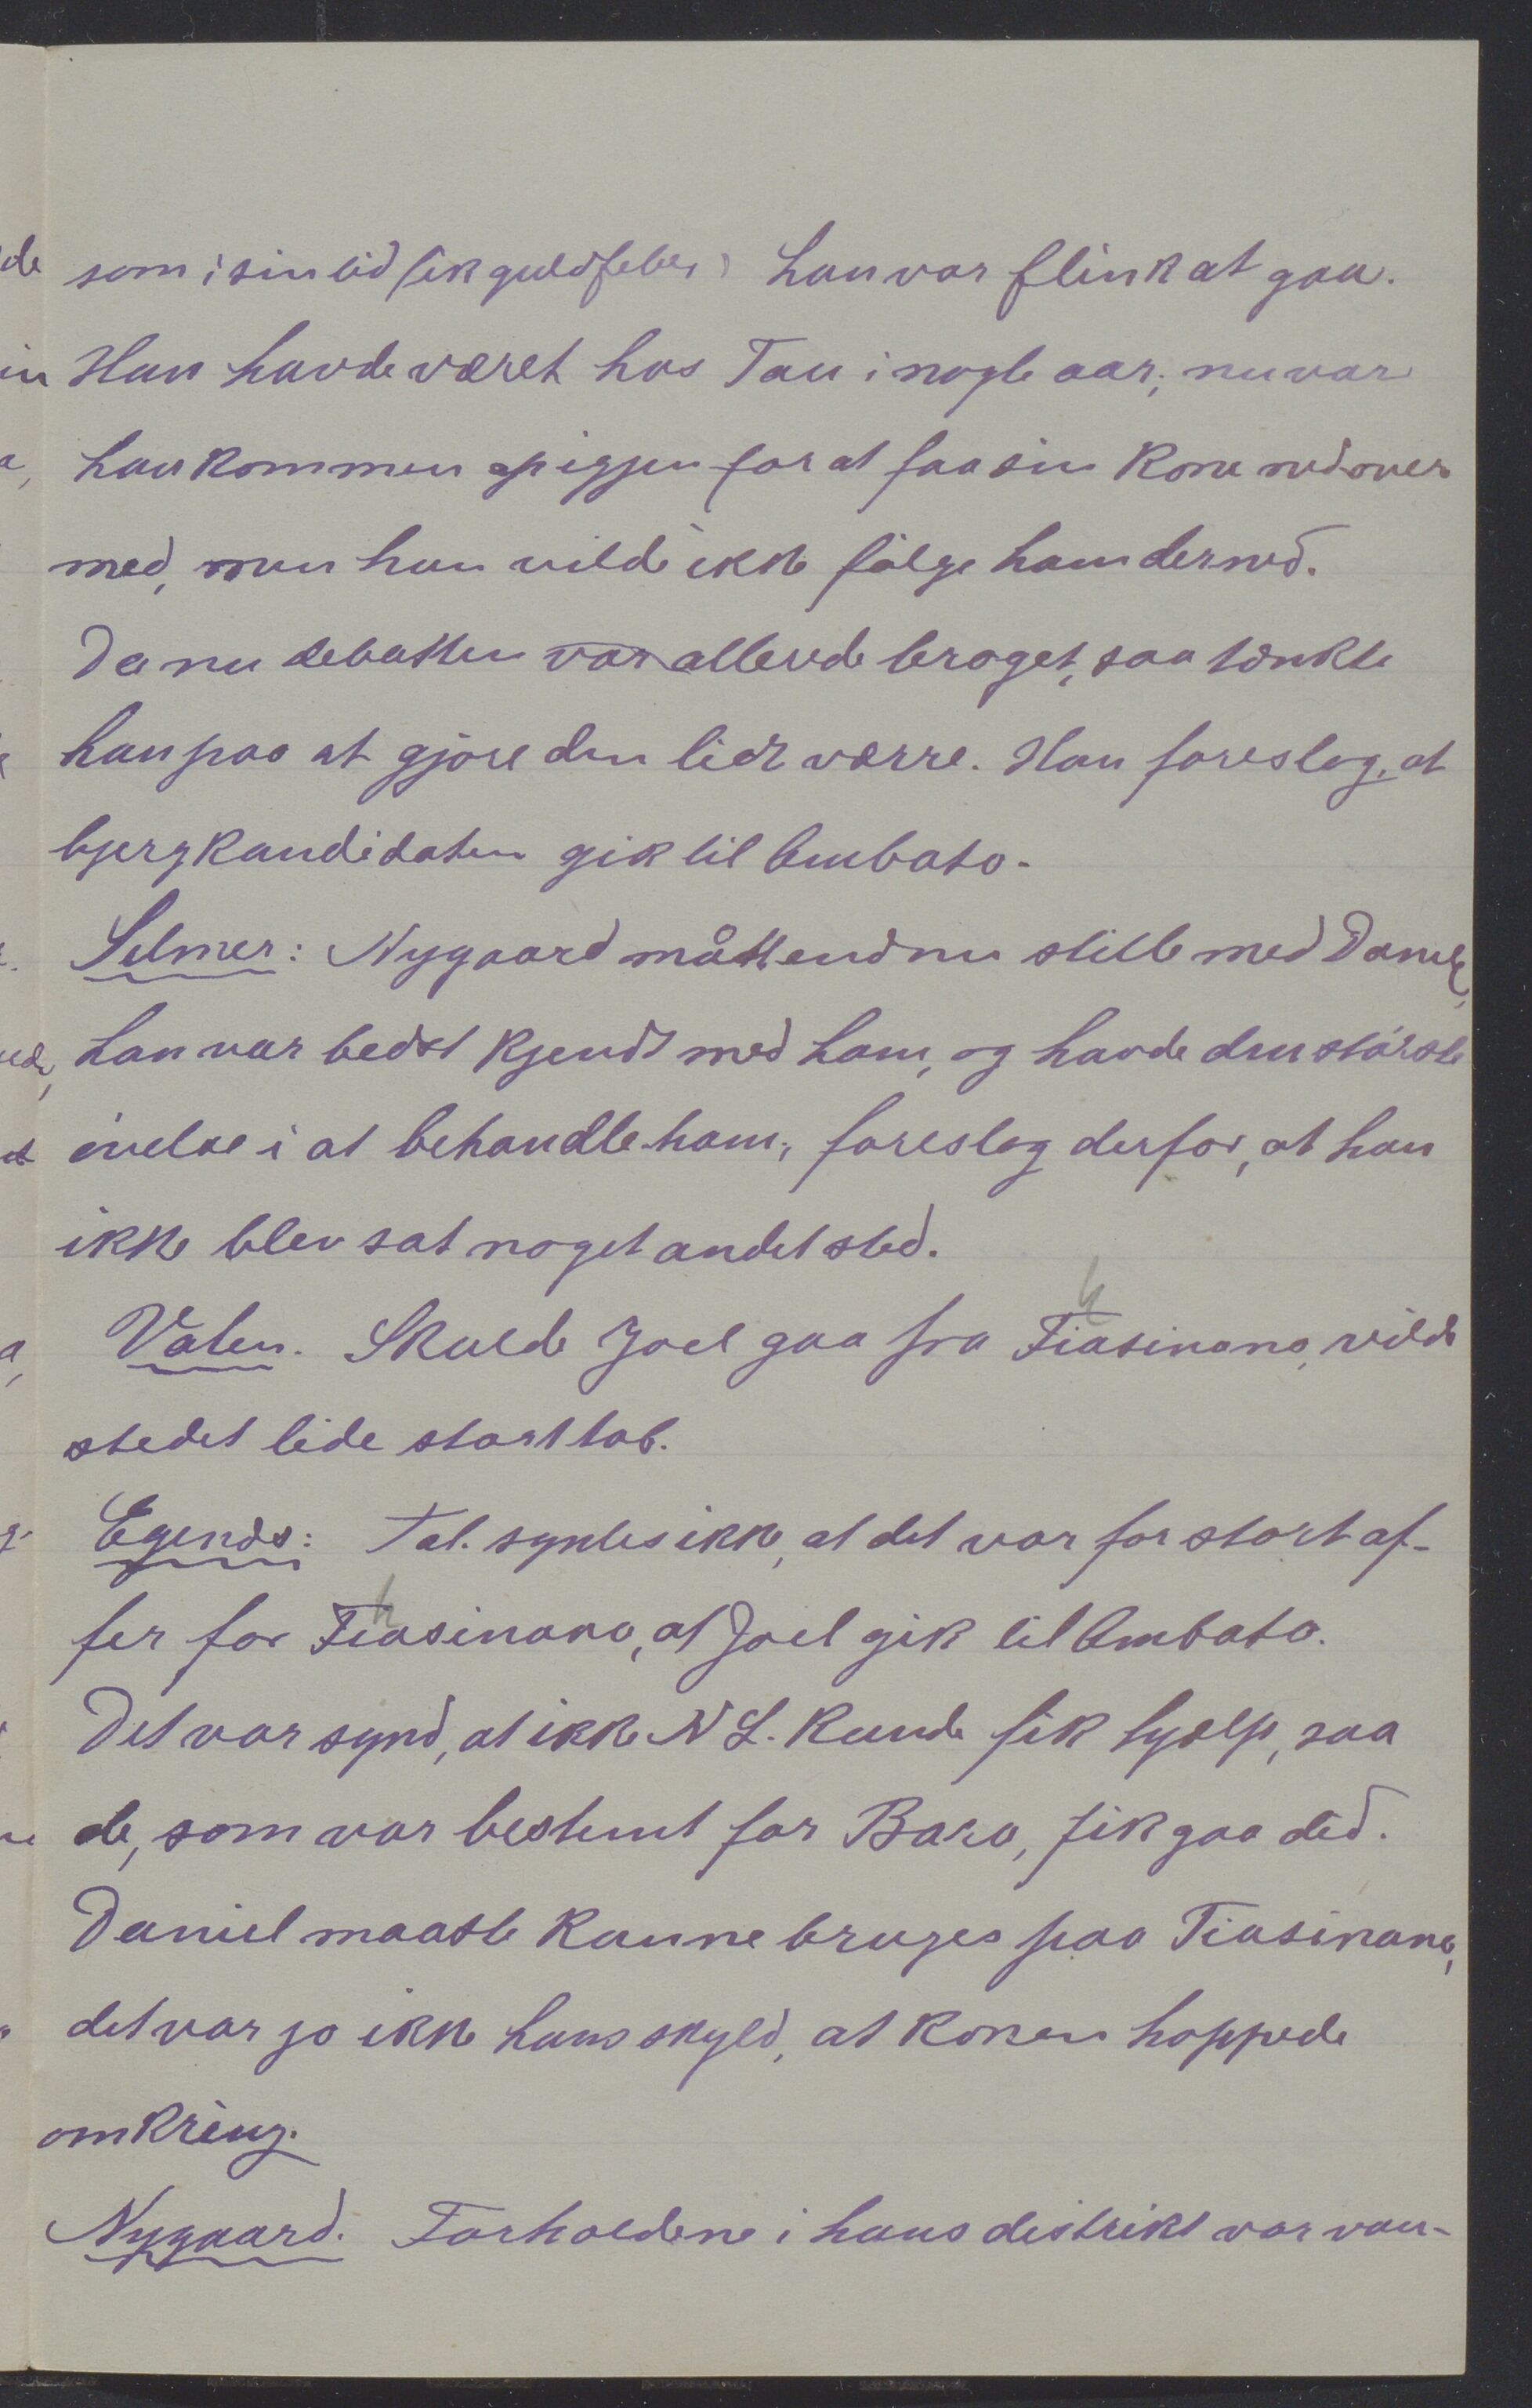 som i sin tid fik guldfeber; han var flink at gaa.
Han havde været hos Tau i nogle aar; nu var
han kommen op igjen for at faa sin kone nedover
med, men hun vilde ikke følge ham derned.
Da nu debatten var allerede broget, saa tænkte
han paa at gjøre den lidt værre. Han foreslog, at
bjergkandidaten gik til Ambato.
Selmer: Nygaard måtte endnu stille med Daniel,
han var bedst kjendt med ham, og havde den største
øvelse i at behandle ham; foreslog derfor, at han
ikke blev sat noget andet sted.
Valen. Skulde Joel gaa fra Fiasinana, vilde
stedet lide stort tab.
Egends: Tal. syntes ikke, at det var for stort of-
fer for Fiasinana, at Joel gik til Ambato.
Det var synd, at ikke N L. kunde fik hjælp, saa
de, som var bestemt for Bara, fik gaa did.
Daniel maatte kunne bruges paa Fiasinana,
det var jo ikke hans skyld, at konen hoppede
omkring.
Nygaard. Forholdene i hans distrikt var van-